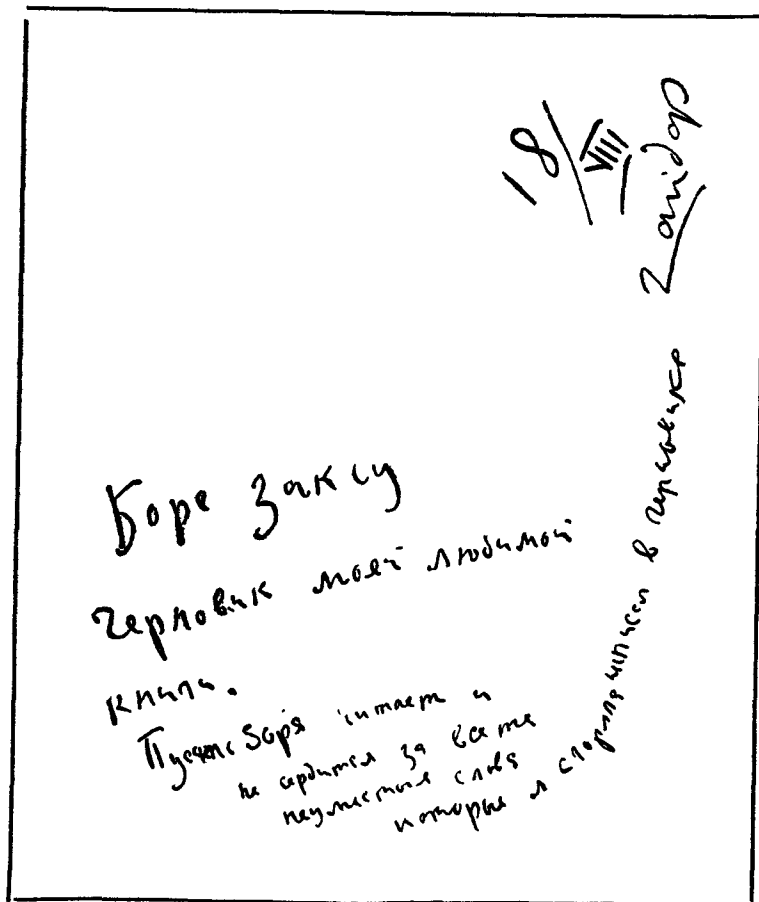 Боре Заксу
черновик моей любимой
книги.
Пусть Боря читает и
не сердится за все те
неуместные слова
которые я сгоряча написал в черновике
Гайдар
18/VIII